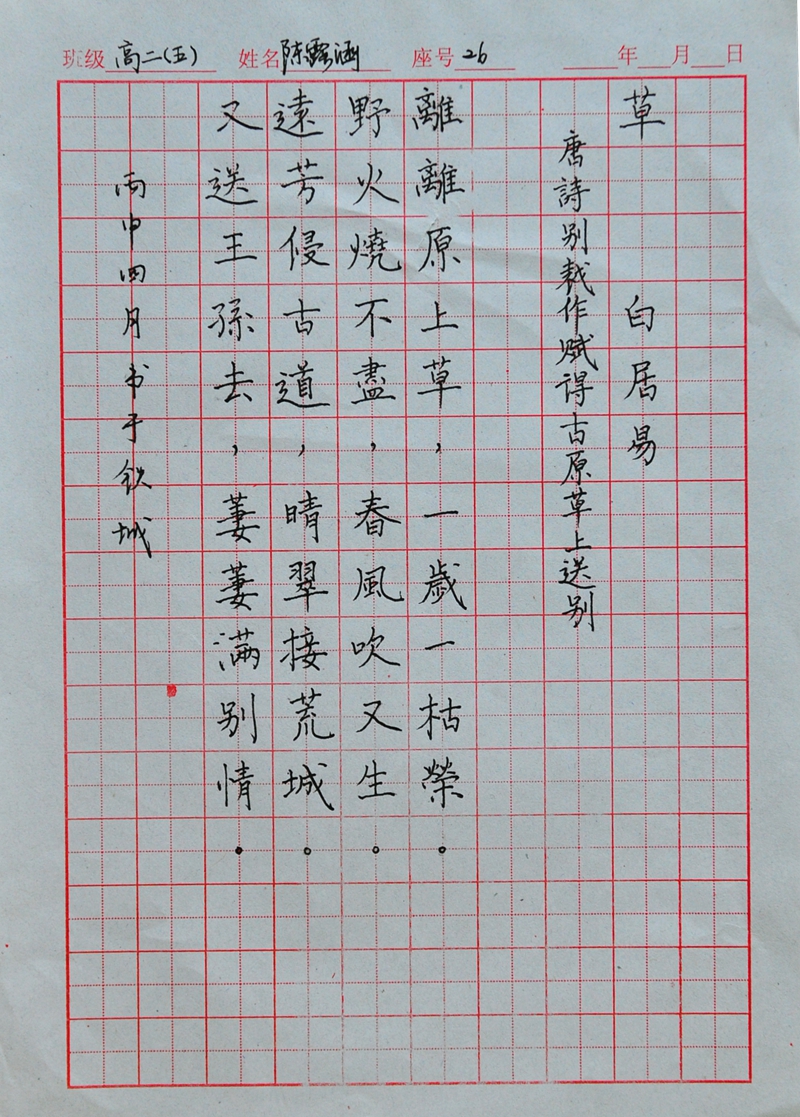 班级 高二(五) 姓名 陈露涵 座号 26 年 月 日
草 白居易
唐詩别裁作赋得古原草上送别
離離原上草，一歲一枯榮。
野火燒不盡，春風吹又生。
遠芳侵古道，晴翠接荒城。
又送王孫去，萋萋满别情。
丙申四月书于铁城